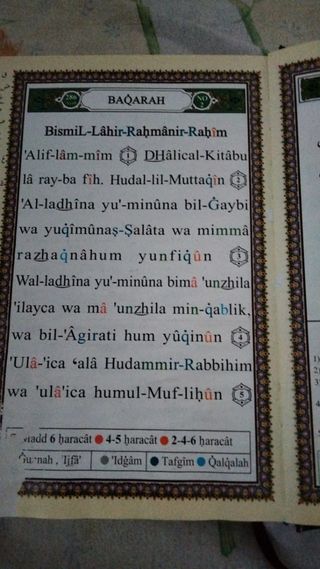 286 BAQARAH NO 2
BismiL-Lâhir-Raḥmânir-Raḥîm
'Alif-lâm-mîm 1 DHâlical-Kitâbu
lâ ray-ba fîh. Hudal-lil-Muttaq̇în 2
'Al-ladhîna yu'-minûna bil-Ġaybi
wa yuq̇îmûnaṣ-Ṣalâta wa mimmâ
razhaq̇nâhum yunfiq̇ûn 3
Wal-ladhîna yu'-minûna bimâ 'unzhila
'ilayca wa mâ 'unzhila min-q̇ablik,
wa bil-'Âgirati hum yûq̇inûn 4
'Ulâ-'ica ‘alâ Hudammir-Rabbihim
wa 'ulâ'ica humul-Muf-liḥûn 5
Madd 6 ḥaracât 4-5 ḥaracât 2-4-6 ḥaracât
'Idġâm Tafgîm Q̇alq̇alah